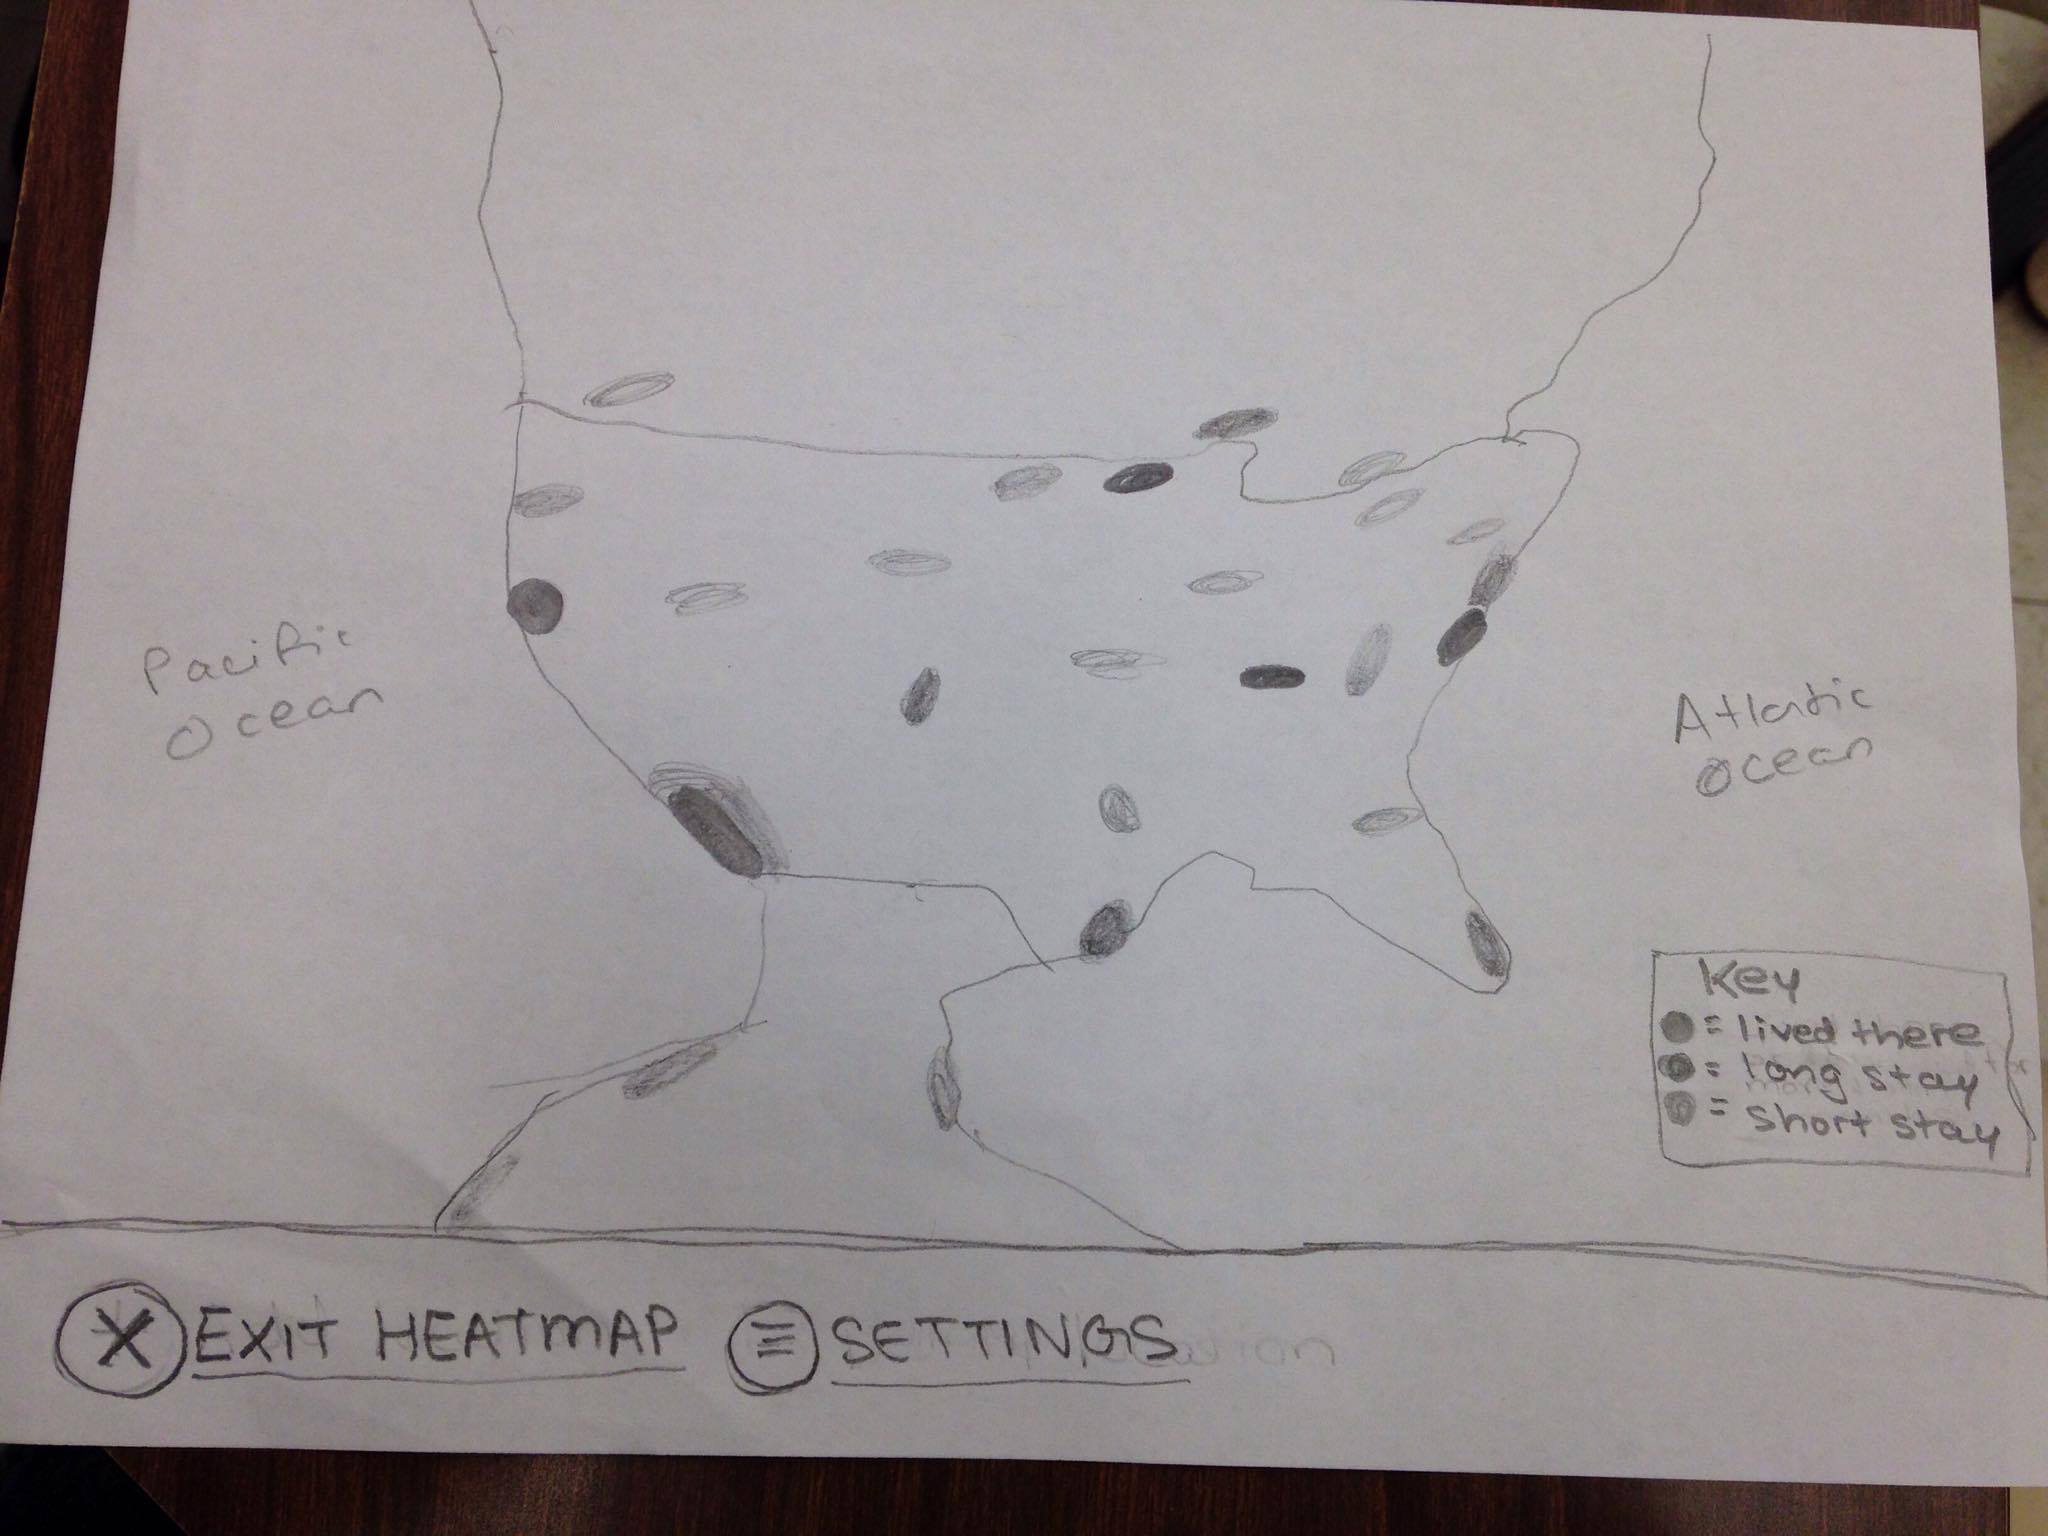 Pacific
Ocean
Atlantic
Ocean
Key
= lived there
= long stay
= short stay
X EXIT HEATMAP
≡ SETTINGS